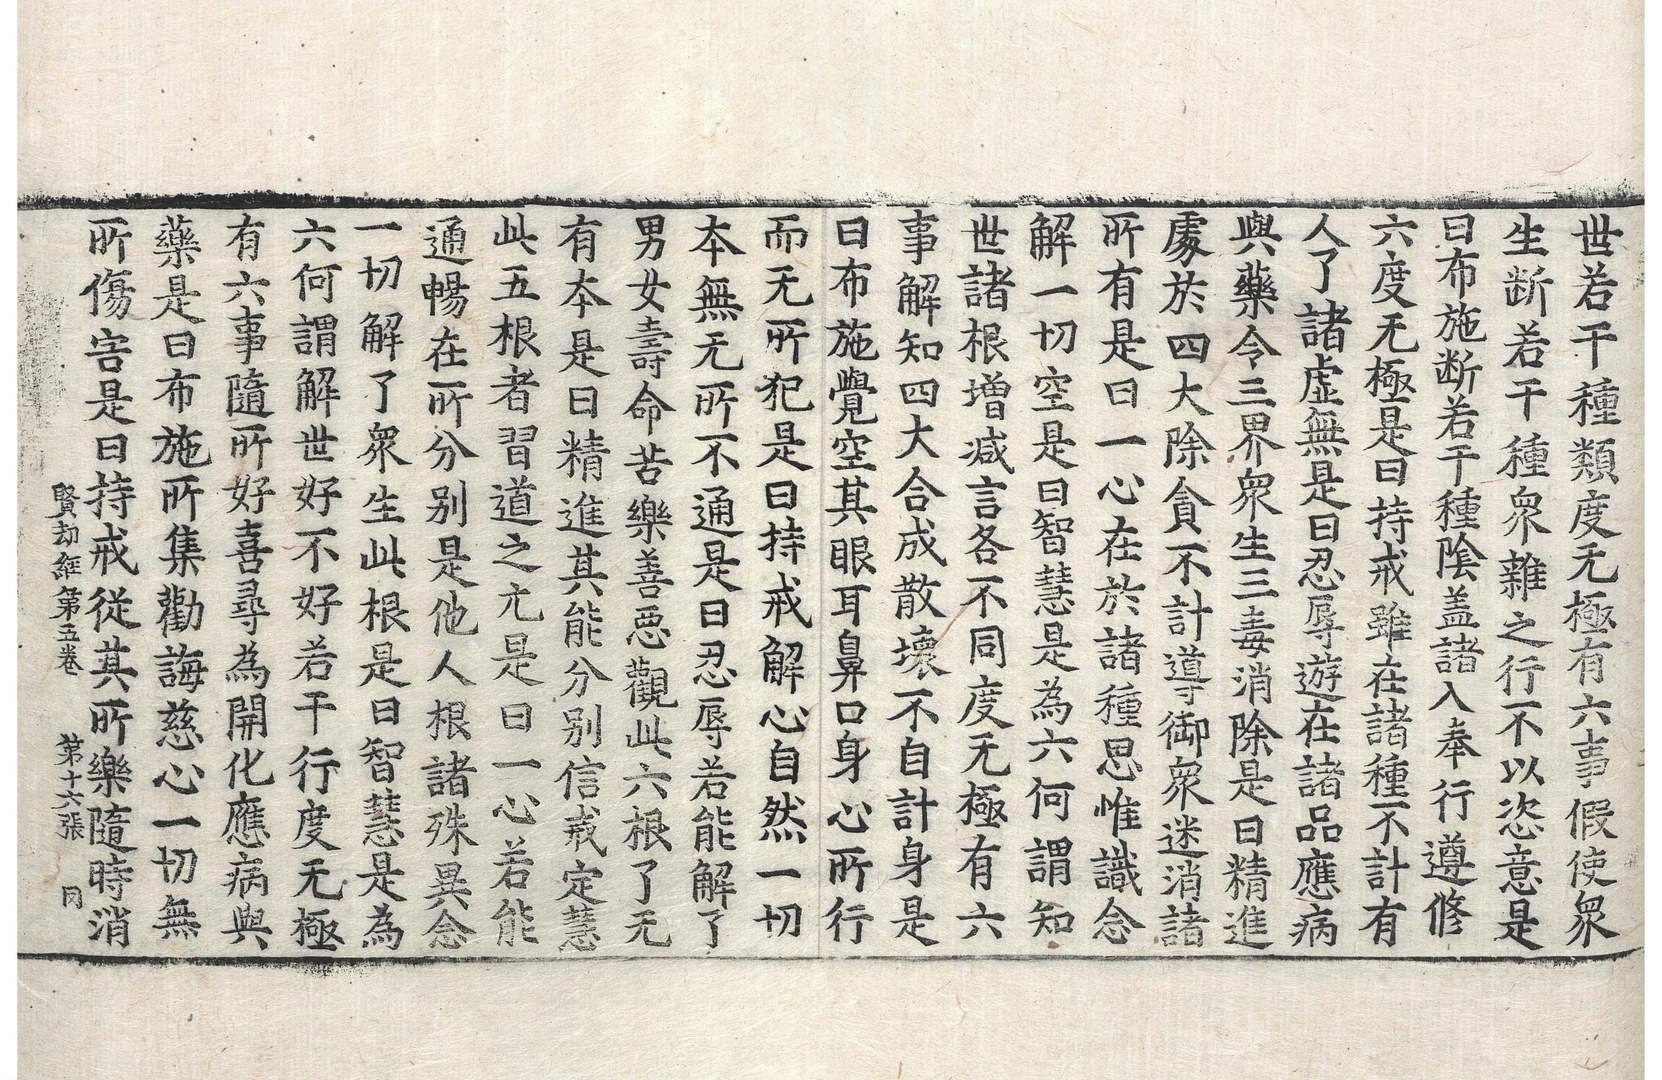 世若干種類度无極有六事假使衆
生断若干種衆雜之行不以恣意是
曰布施断若干種陰盖諸入奉行遵修
六度无極是曰持戒雖在諸種不計有
人了諸虛無是曰忍辱遊在諸品應病
與藥令三界衆生三毒消除是曰精進
處於四大除貪不計導御衆迷消諸
所有是曰一心在於諸種思惟識念
解一切空是曰智慧是為六何謂知
世諸根增減言各不同度无極有六
事解知四大合成散壞不自計身是
曰布施覺空其眼耳鼻口身心所行
而无所犯是曰持戒解心自然一切
本無无所不通是曰忍辱若能解了
男女壽命苦樂善惡觀此六根了无
有本是曰精進其能分別信戒定慧
此五根者習道之元是曰一心若能
通暢在所分別是他人根諸殊異念
一切解了衆生此根是曰智慧是為
六何謂解世好不好若干行度无極
有六事隨所好喜尋為開化應病與
藥是曰布施所集勸誨慈心一切無
所傷害是曰持戒從其所樂隨時消
賢劫経第五卷 第十六張 冈